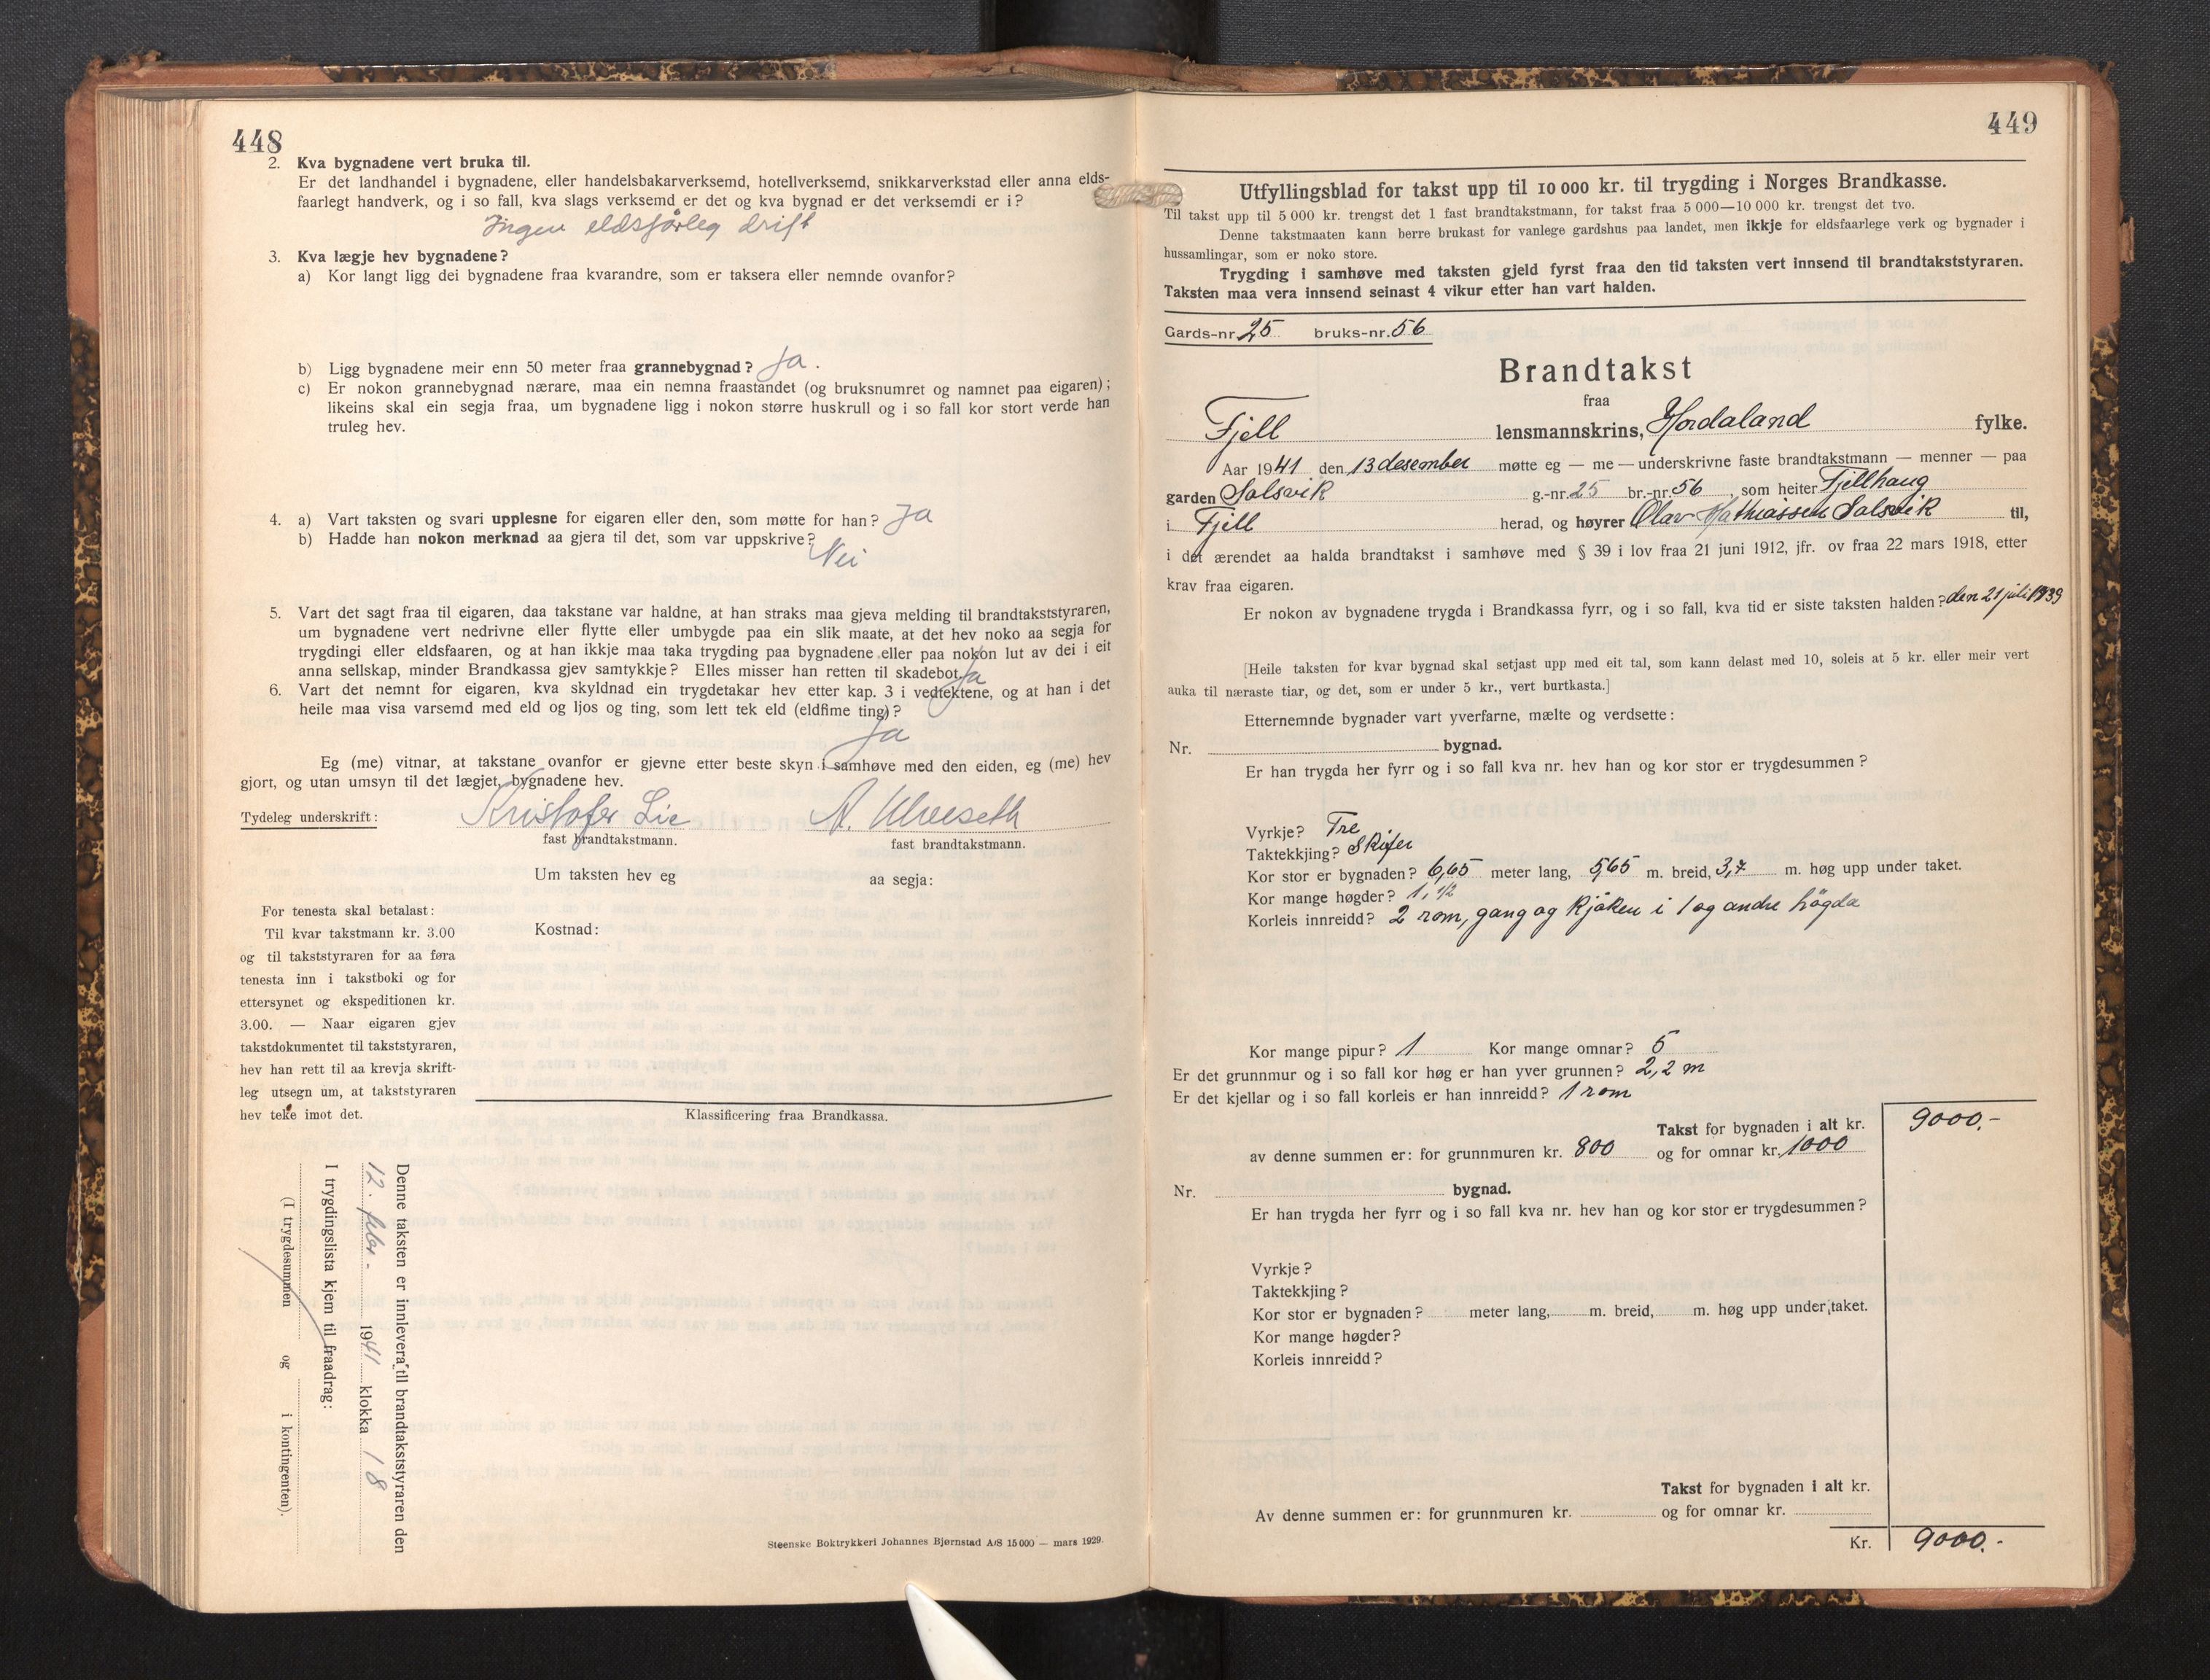 448
2. Kva bygnadene vert bruka til.
Er det landhandel i bygnadene, eller handelsbakarverksemd, hotellverksemd, snikkarverkstad eller anna elds-
faarlegt handverk, og i so fall, kva slags verksemd er det og kva bygnad er det verksemdi er i?
Ingen eldsfårleg drift
3. Kva lægje hev bygnadene?
a) Kor langt ligg dei bygnadene fraa kvarandre, som er taksera eller nemnde ovanfor?
b) Ligg bygnadene meir enn 50 meter fraa grannebygnad? Ja.
c) Er nokon grannebygnad nærare, maa ein nemna fraastandet (og bruksnumret og namnet paa eigaren);
likeins skal ein segja fraa, um bygnadene ligg i nokon større huskrull og i so fall kor stort verde han
truleg hev.
4. a) Vart taksten og svari upplesne for eigaren eller den, som møtte for han? Ja
b) Hadde han nokon merknad aa gjera til det, som var uppskrive?
Nei
5. Vart det sagt fraa til eigaren, daa takstane var haldne, at han straks maa gjeva melding til brandtakststyraren,
um bygnadene vert nedrivne eller flytte eller umbygde paa ein slik maate, at det hev noko aa segja for
trygdingi eller eldsfaaren, og at han ikkje maa taka trygding paa bygnadene eller paa nokon lut av dei i eit
anna sellskap, minder Brandkassa gjev samtykkje? Elles misser han retten til skadebot. Ja
6. Vart det nemnt for eigaren, kva skyldnad ein trygdetakar hev etter kap. 3 i vedtektene, og at han i det
heile maa visa varsemd med eld og ljos og ting, som lett tek eld (eldfime ting)?
Ja
Eg (me) vitnar, at takstane ovanfor er gjevne etter beste skyn i samhøve med den eiden, eg (me) hev
gjort, og utan umsyn til det lægjet, bygnadene hev.
Tydeleg underskrift: Kristofer Lie A. Ulveseth
fast brandtakstmann. fast brandtakstmann.
Um taksten hev eg aa segja:
For tenesta skal betalast:
Til kvar takstmann kr. 3.00
og til takststyraren for aa føra
tenesta inn i takstboki og for
ettersynet og ekspeditionen kr.
3.00. — Naar eigaren gjev
takstdokumentet til takststyraren,
hev han rett til aa krevja skrift-
leg utsegn um, at takststyraren
hev teke imot det.
Kostnad:
Klassificering fraa Brandkassa.
Denne taksten er innlevera til brandtakststyraren den
12. febr. 1941 klokka 18
I trygdingslista kjem til fraadrag:
(I trygdesummen og i kontingenten).
Steenske Boktrykkeri Johannes Bjørnstad A/S 15 000 — mars 1929.
449
Utfyllingsblad for takst upp til 10 000 kr. til trygding i Norges Brandkasse.
Til takst upp til 5 000 kr. trengst det 1 fast brandtakstmann, for takst fraa 5 000—10 000 kr. trengst det tvo.
Denne takstmaaten kann berre brukast for vanlege gardshus paa landet, men ikkje for eldsfaarlege verk og bygnader i
hussamlingar, som er noko store.
Trygding i samhøve med taksten gjeld fyrst fraa den tid taksten vert innsend til brandtakststyraren.
Taksten maa vera innsend seinast 4 vikur etter han vart halden.
Gards-nr. 25 bruks-nr. 56
Brandtakst
fraa
Fjell lensmannskrins, Hordaland fylke.
Aar 1941 den 13 desember møtte eg — me — underskrivne faste brandtakstmann — menner — paa
garden Solsvik g.-nr. 25 br.-nr. 56, som heiter Fjellhaug
i Fjell herad, og høyrer Olav Mathiassen Solsvik til,
i det ærendet aa halda brandtakst i samhøve med § 39 i lov fraa 21 juni 1912, jfr. ov fraa 22 mars 1918, etter
krav fraa eigaren.
Er nokon av bygnadene trygda i Brandkassa fyrr, og i so fall, kva tid er siste taksten halden? den 21 juli 1939
[Heile taksten for kvar bygnad skal setjast upp med eit tal, som kann delast med 10, soleis at 5 kr. eller meir vert
auka til næraste tiar, og det, som er under 5 kr., vert burtkasta.]
Etternemnde bygnader vart yverfarne, mælte og verdsette:
Nr. bygnad.
Er han trygda her fyrr og i so fall kva nr. hev han og kor stor er trygdesummen?
Vyrkje? Tre
Taktekkjing? Skifer
Kor stor er bygnaden? 6,65 meter lang, 5,65 m. breid, 3,7 m. høg upp under taket.
Kor mange høgder? 1, 1/2
Korleis innreidd? 2 rom, gang og kjøken i 1 og andre høgda
Kor mange pipur? 1 Kor mange omnar? 5
Er det grunnmur og i so fall kor høg er han yver grunnen? 2,2 m
Er det kjellar og i so fall korleis er han innreidd? 1 rom
Takst for bygnaden i alt kr. 9000.-
av denne summen er: for grunnmuren kr. 800 og for omnar kr. 1000
Nr. bygnad.
Er han trygda her fyrr og i so fall kva nr. hev han og kor stor er trygdesummen?
Vyrkje?
Taktekkjing?
Kor stor er bygnaden? meter lang, m. breid, m. høg upp under taket.
Kor mange høgder?
Korleis innreidd?
Takst for bygnaden i alt kr.
Av denne summen er: for grunnmuren kr. og for omnar kr.
Kr. 9000.-